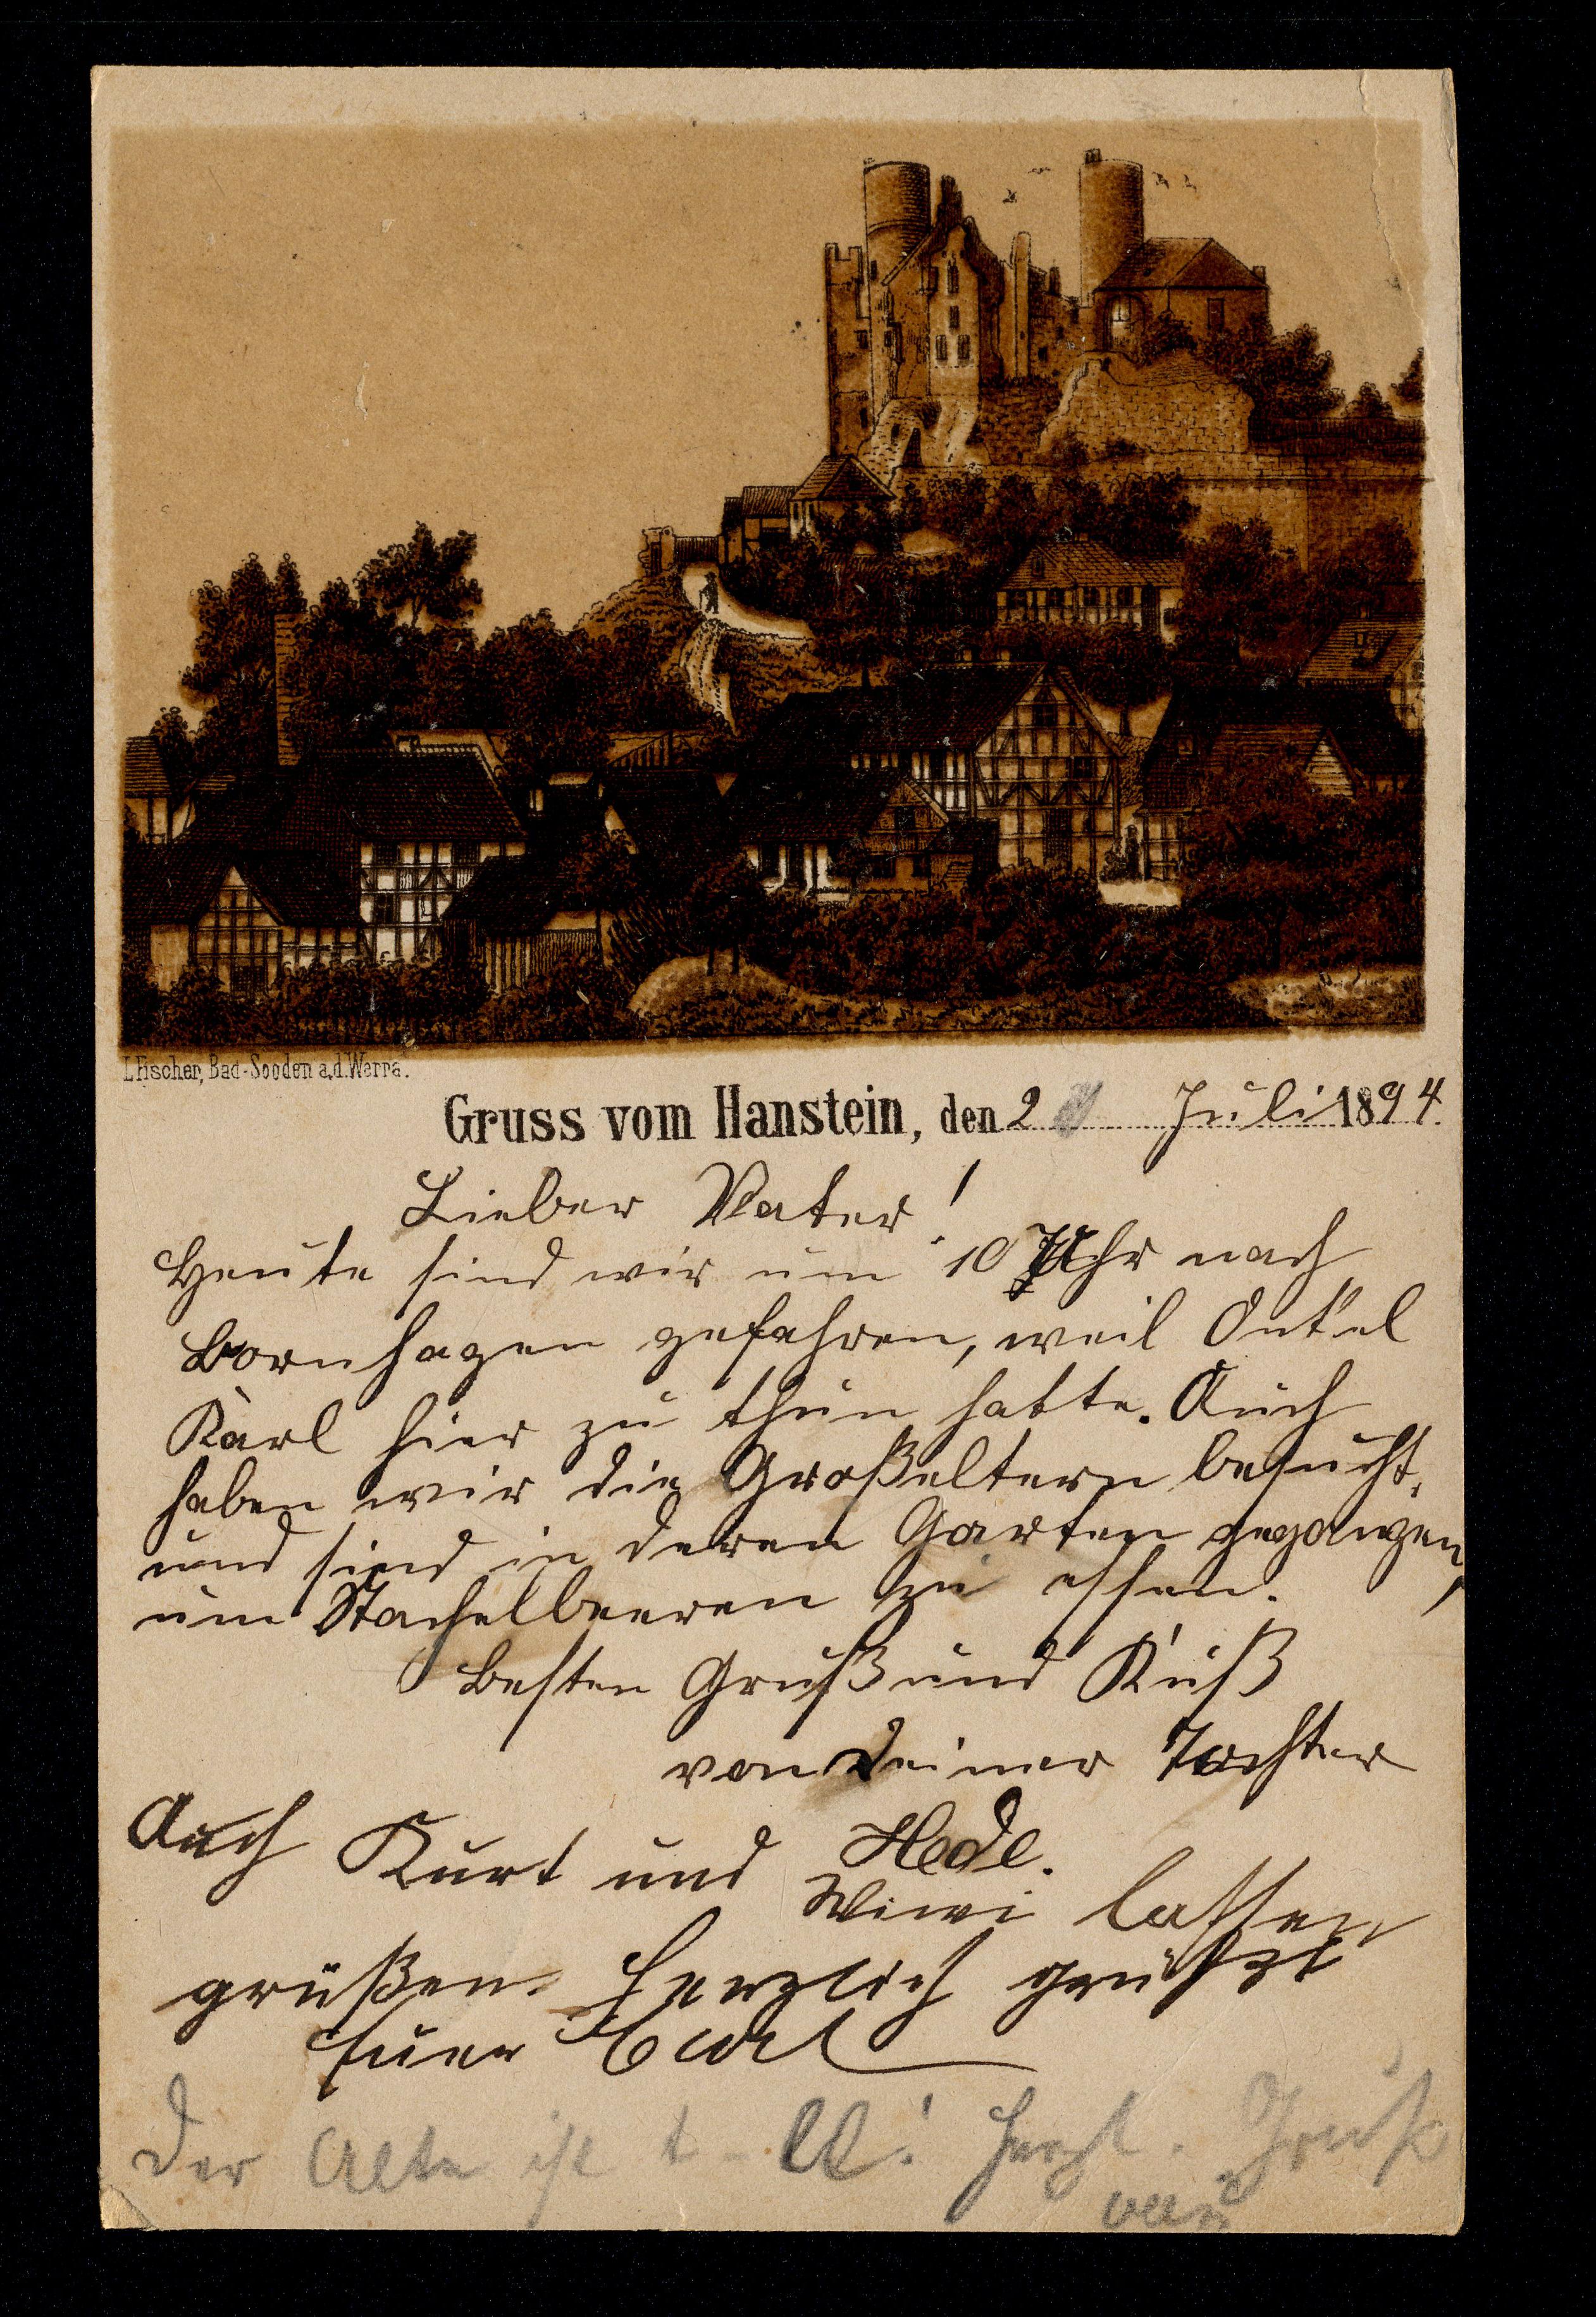 L Fischer, Bad-Sooden a.d. Werra.
Gruss vom Hanstein, den 2 Juli 1894.
Lieber Vater!
Heute sind wir um 10 Uhr nach
Bornhagen gefahren, weil Onkel
Karl hier zu thun hatte. Auch
haben wir die Großeltern besucht,
und sind in deren Garten gegangen,
um Stachelbeeren zu essen.
Besten Gruß und Kuß
von Deiner Tochter
Hede.
Auch Kurt und Wiwi lassen
grüßen. Herzlich grüßt
Euer Carl
Der Alte ist t- ll! Herzl. Gruß